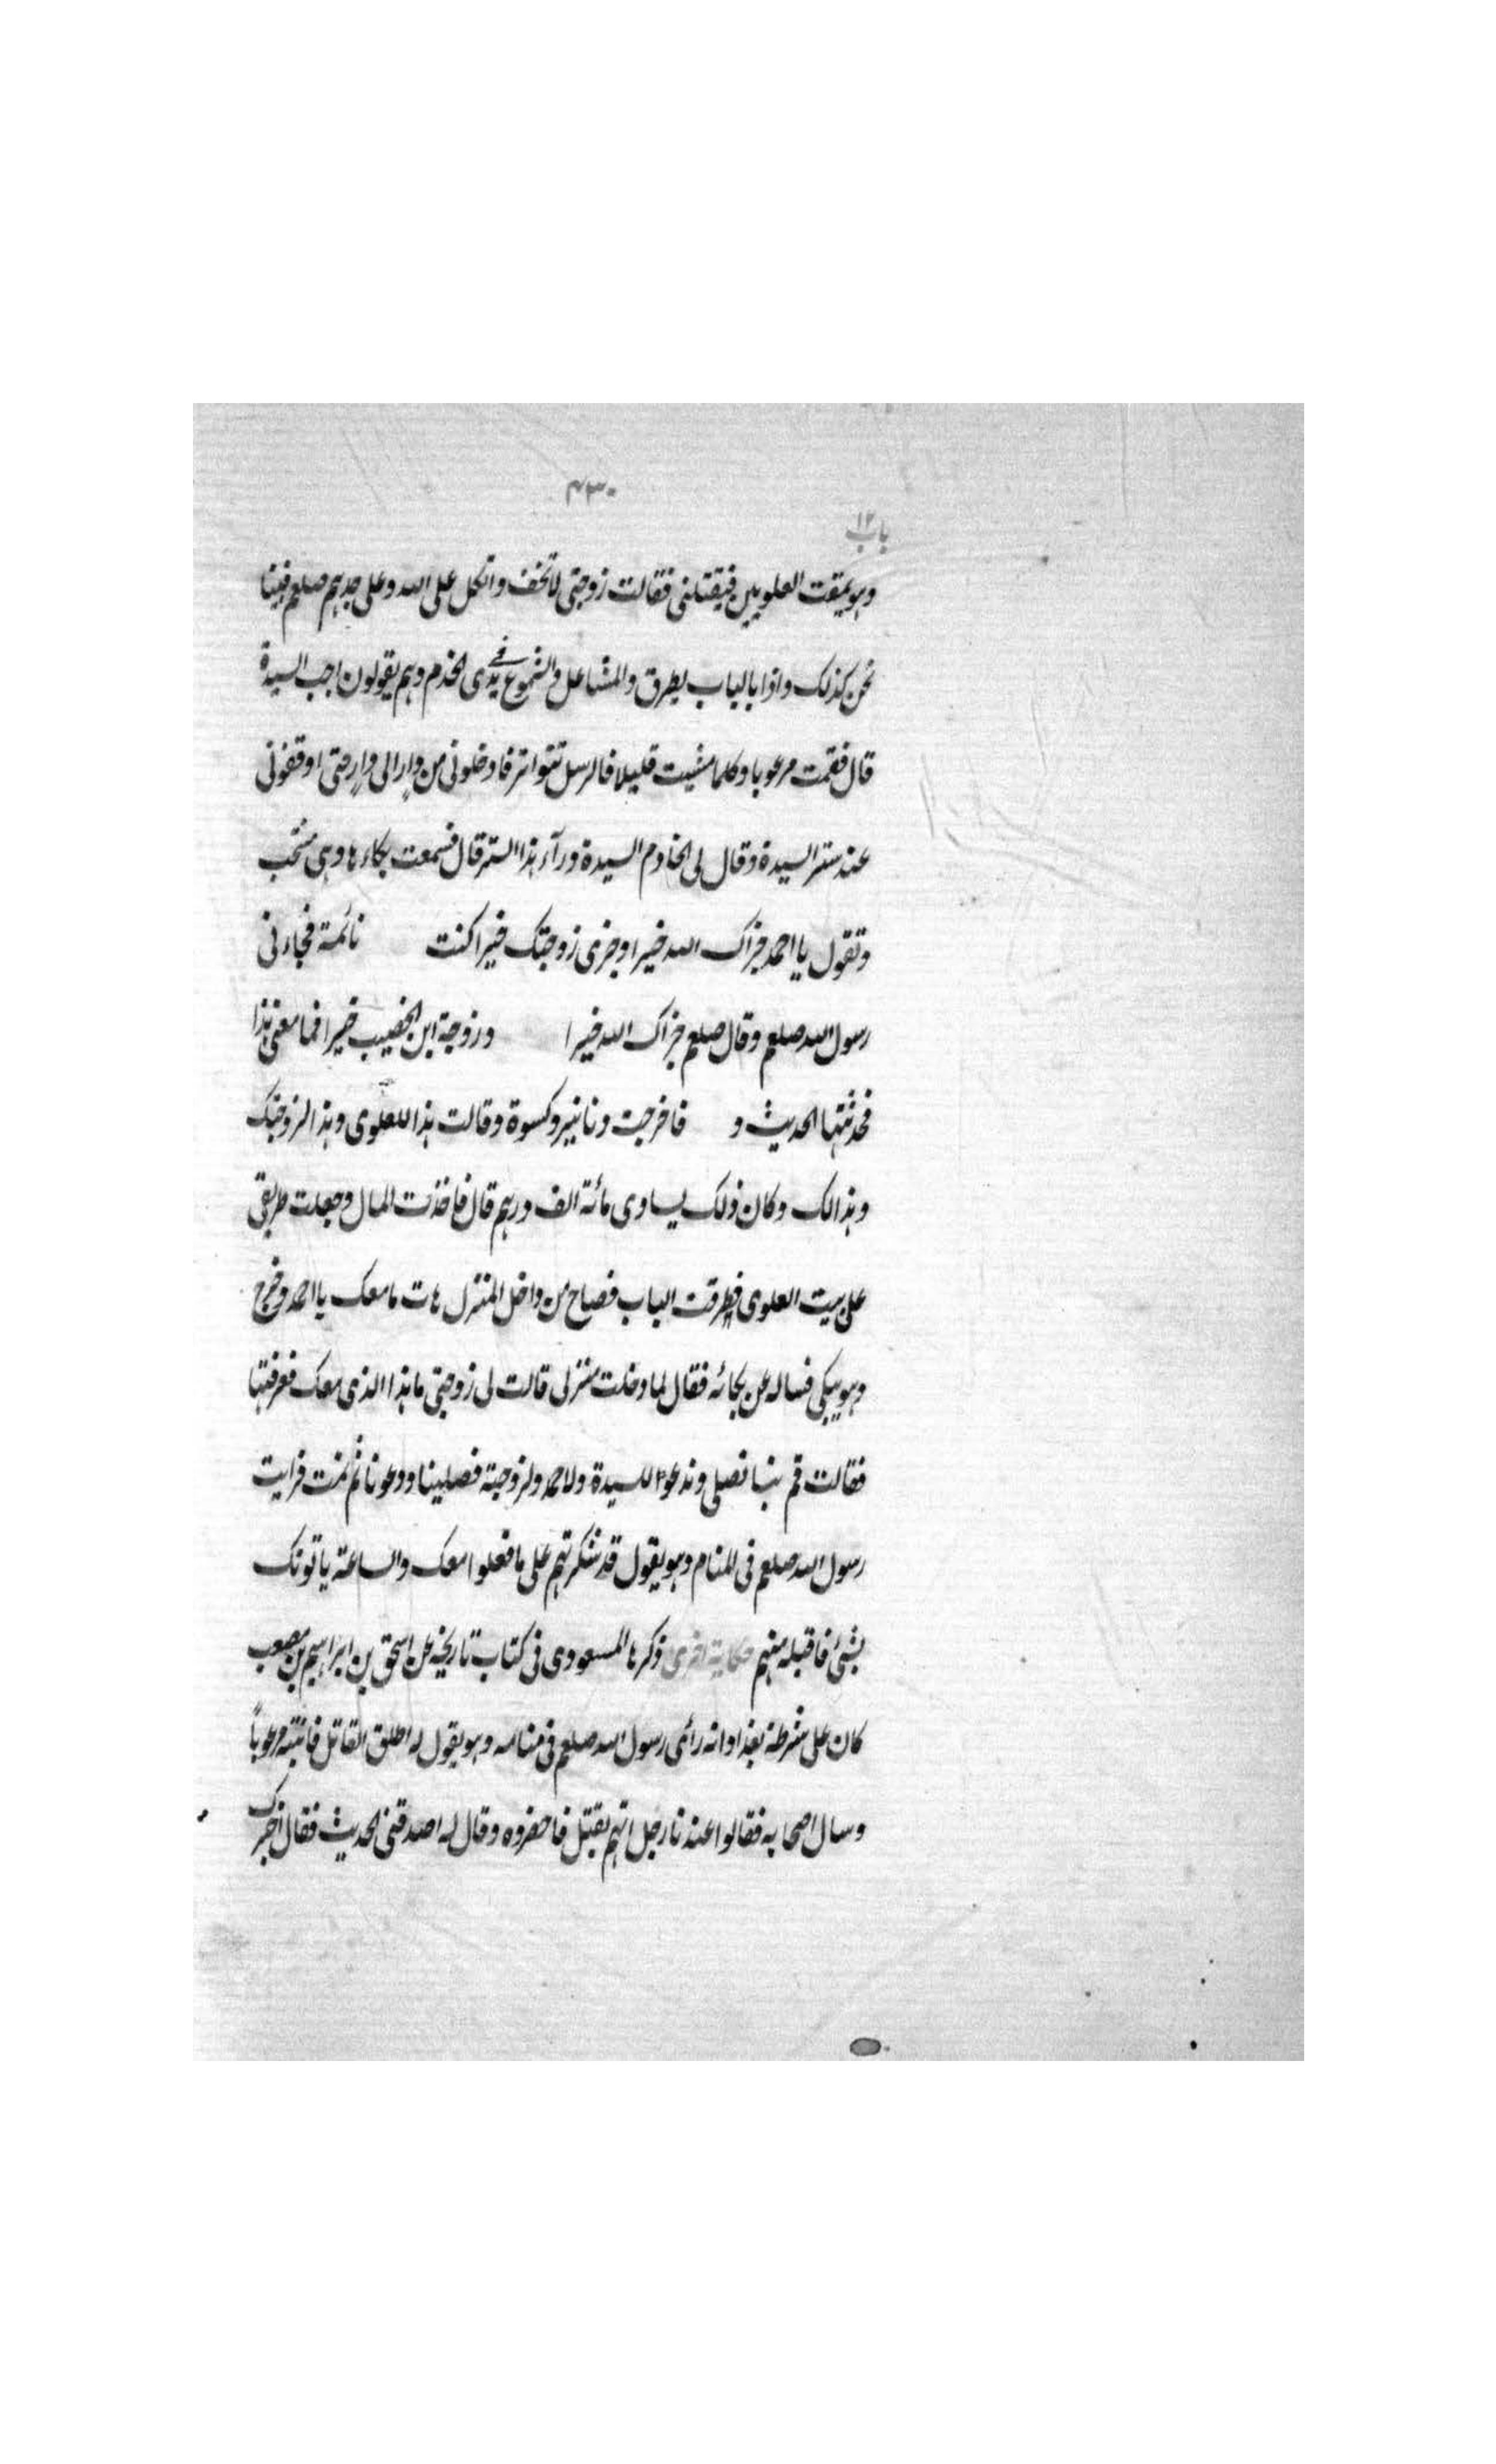 ۴۳۰
باب ۱۲
وهو يمقت العلويين فيقتلنى فقالت زوجتى لا تخف واتكل على الله وعلى جدهم صلعم فبينا
نحن كذلك واذا بالباب يطرق والمشاعل والشموع فى يدى الخدم وهم يقولون اجب السيدة
قال فقمت مرعوبا وكلما مشيت قليلا فالرسل تتواتر فادخلونى من دار الى دار حتى اوقفونى
عند ستر السيدة وقال لى الخادم السيدة ورآء هذا الستر قال فسمعت بكاءها وهى تنتحب
وتقول يا احمد جزاك الله خيرا وجزى زوجتك خيرا كنت نائمة فجاءنى
رسول الله صلعم وقال صلعم جزاك الله خيرا وزوجة ابن الخصيب خيرا فما معنى هذا
فحدثتها الحديث و فاخرجت دنانير وكسوة وقالت هذا للعلوى وهذا لزوجتك
وهذا لك وكان ذلك يساوى مائة الف درهم قال فاخذت المال وجعلت طريقى
على بيت العلوى فطرقت الباب فصاح من داخل المنزل هات ما معك يا احمد وخرج
وهو يبكى فساله عن بكائه فقال لما دخلت منزلى قالت لى زوجتى ما هذا الذى معك فعرفتها
فقالت قم بنا نصلى وندعوا للسيدة ولاحمد ولزوجته فصلينا ودعونا ثم نمت فرايت
رسول الله صلعم فى المنام وهو يقول قد شكرتهم على ما فعلوا معك والساعة ياتونك
بشئ فاقبله منهم حكاية اخرى ذكرها المسعودى فى كتاب تاريخه عن اسحق بن ابراهيم بن مصعب
كان على شرطة بغداد انه رأى رسول الله صلعم فى منامه وهو يقول له اطلق القاتل فانتبه مرعوباً
وسال اصحابه فقالوا عندنا رجل اتهم بقتل فاحضروه وقال له اصدقنى الحديث فقال اخبرك